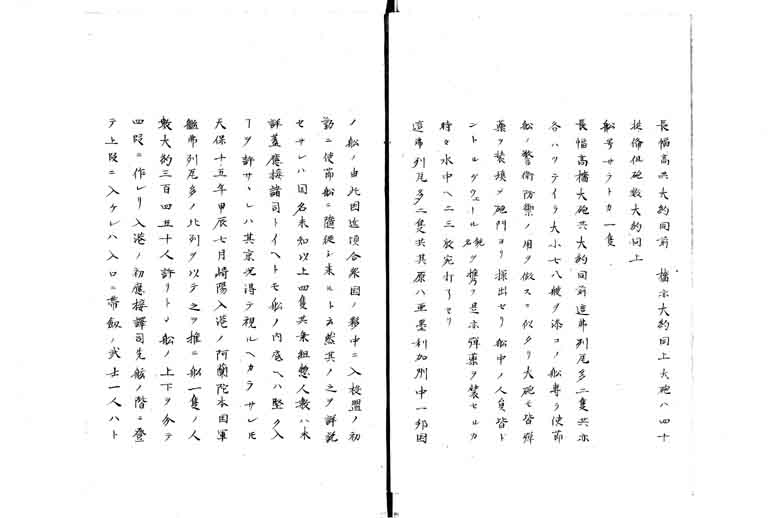 長幅高共大約同前 檣亦大約同上大砲ハ四十
挾侖但砲数大約同上
船号サラトカ一隻
長幅高檣大砲共大約同前這弗列尼多二隻共亦
各ハツテイラ大小七八艘ヲ添コノ船専ラ使節
船ノ警衛防禦ノ用ヲ做スニ似タリ大砲モ皆弾
薬ヲ装填シ砲門ヨリ探出セリ船中ノ人員皆ド
ントルグウェール銃名ヲ携ヘ是亦弾薬ヲ装セルカ
時々水中ヘ二三放宛打ツセリ
這弗列尼多二隻共其原ハ亜墨利加洲中一邦国
ノ船ノ由此国近頃合衆国ノ夥中ニ入校盟ノ初
ニ使節船ニ随従シ来ルト云然其ノ之ヲ詳説
セサレハ国名未知以上四隻共乗組惣人数ハ未
詳蓋應接諸司トイヘトモ船ノ内底ヘハ堅ク入
ヿヲ許サヽレハ其京况得テ視ルヘカラサレモ
天保十五年甲辰七月崎陽入港ノ阿蘭陀本国軍
艦弗列尼多ノ比列ヲ以テ之ヲ推ニ船一隻ノ人
数大約三百四五十人許リトス船ノ上下ヲ分テ
四段ニ作レリ入港ノ初應接譯司先舷ノ階ニ登
テ上段ニ入ケレハ入口ニ帯劔ノ武士一人ハト